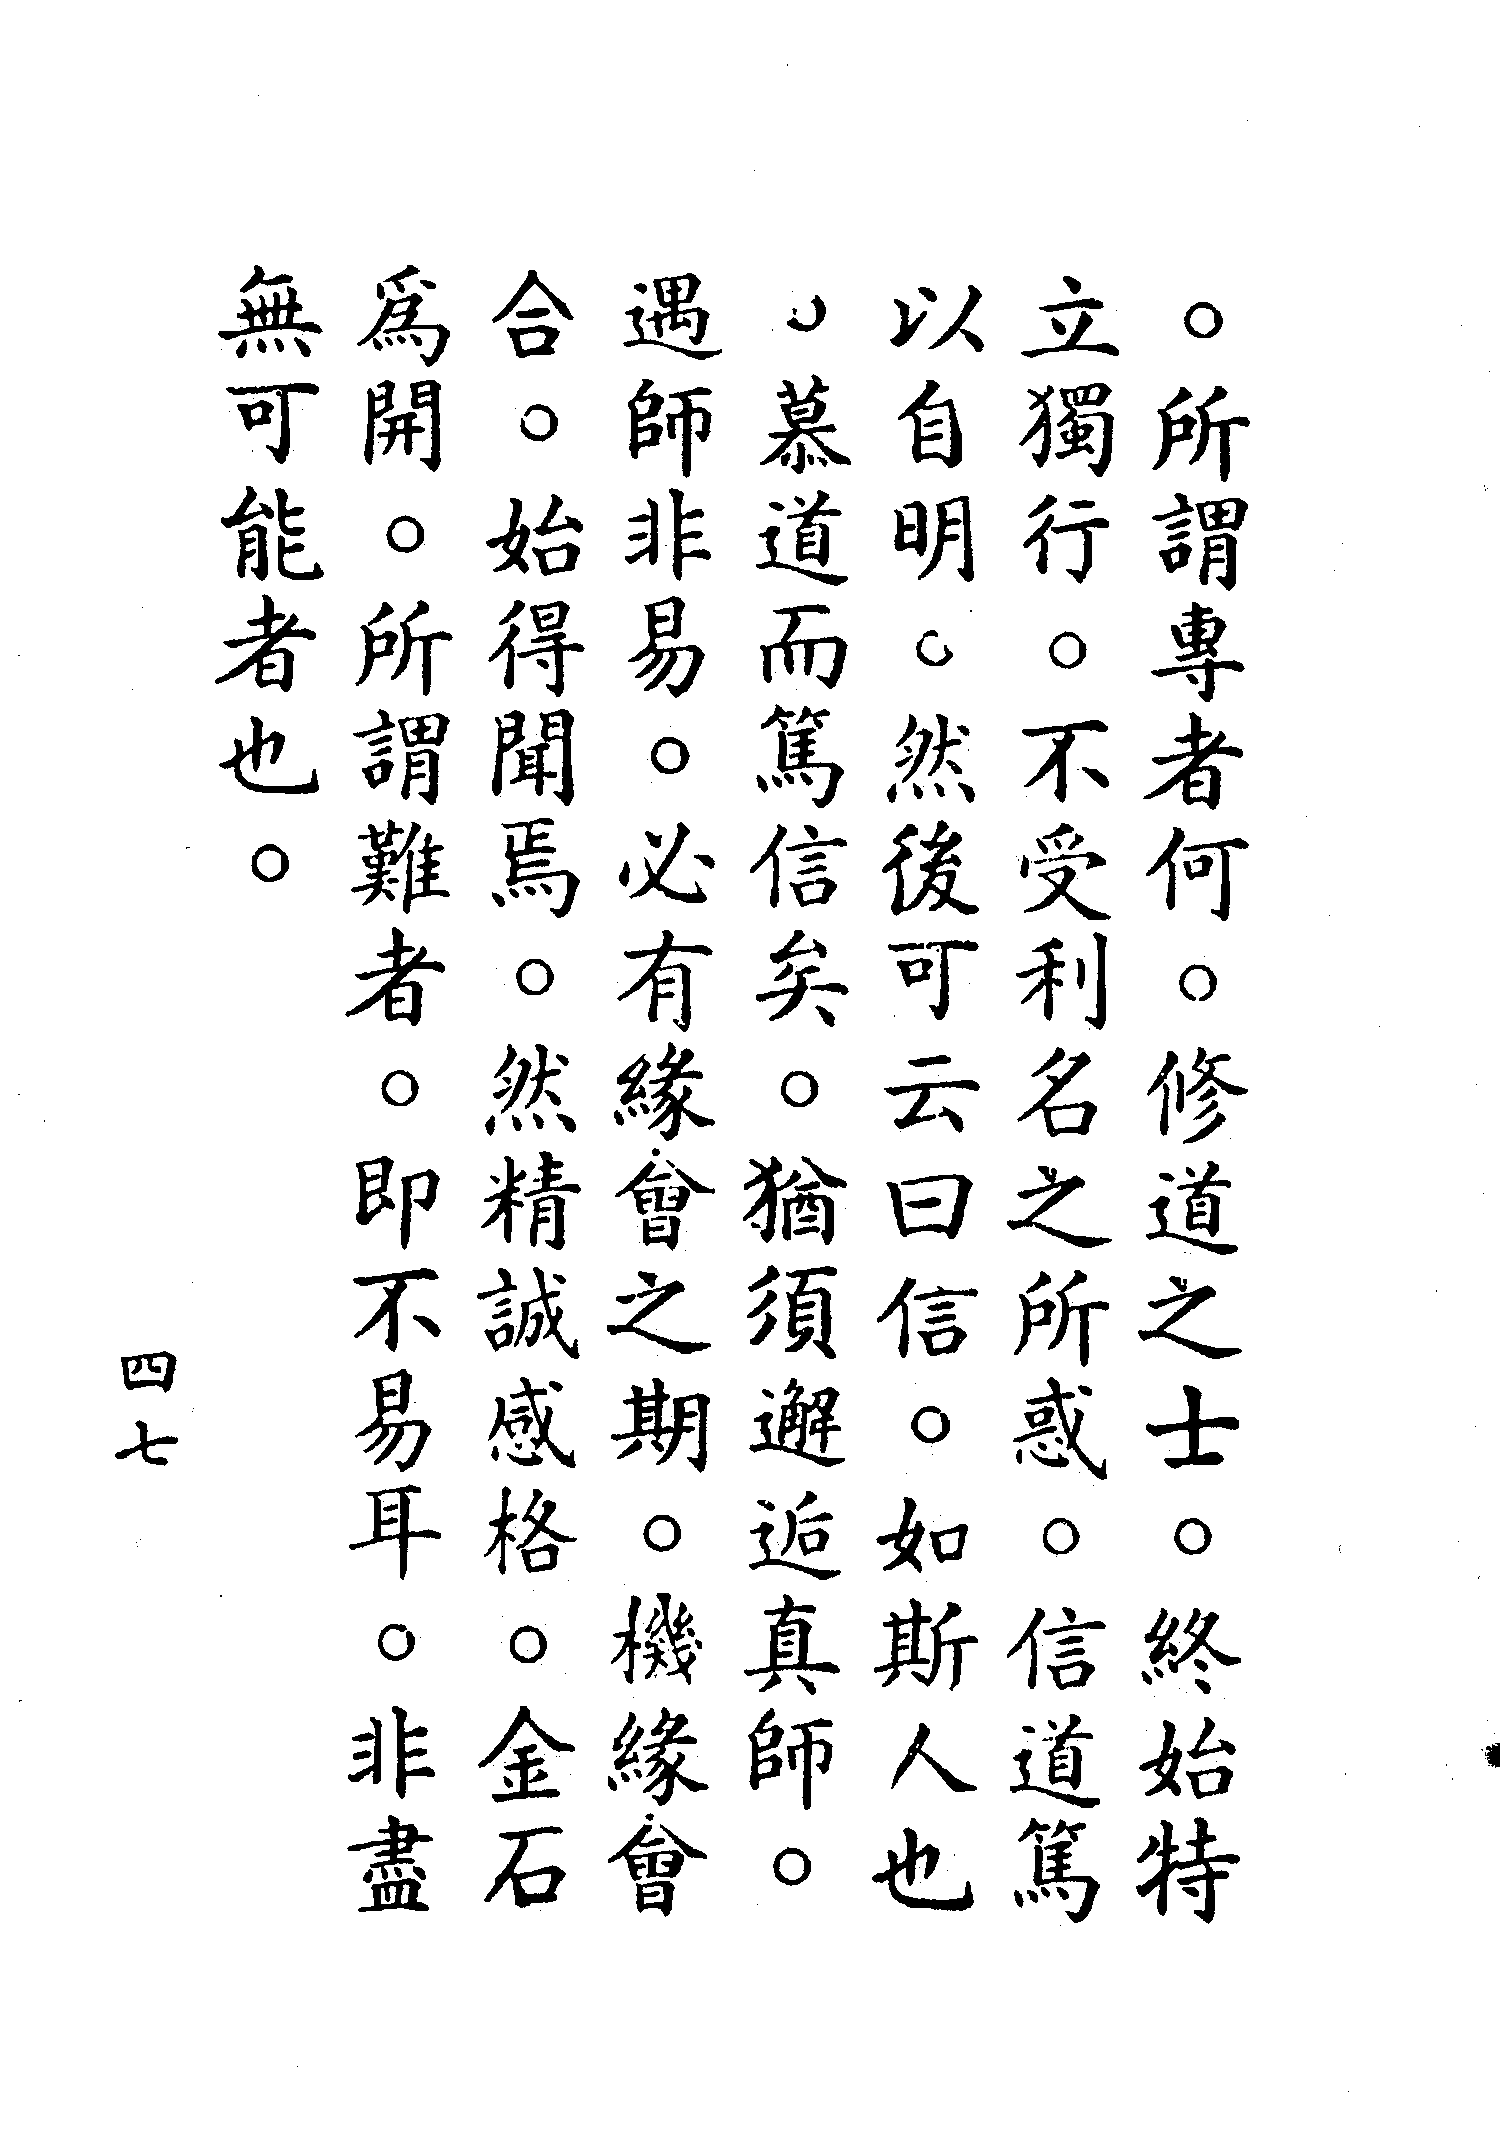 。所謂專者何。修道之士。終始特
立獨行。不受利名之所惑。信道篤
以自明。然後可云曰信。如斯人也
。慕道而篤信矣。猶須邂逅真師。
遇師非易。必有緣會之期。機緣會
合。始得聞焉。然精誠感格。金石
爲開。所謂難者。即不易耳。非盡
無可能者也。
四七